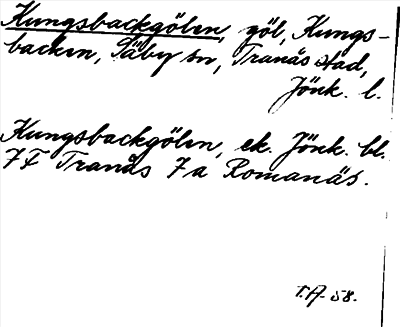 Kungsbackgölen, göl, Kungs-
backen, Säby sn, Tranås stad,
Jönk. l.
Kungsbackgölen, ek. Jönk. bl.
7F Tranås 7a Romanäs.
T.A. 58.